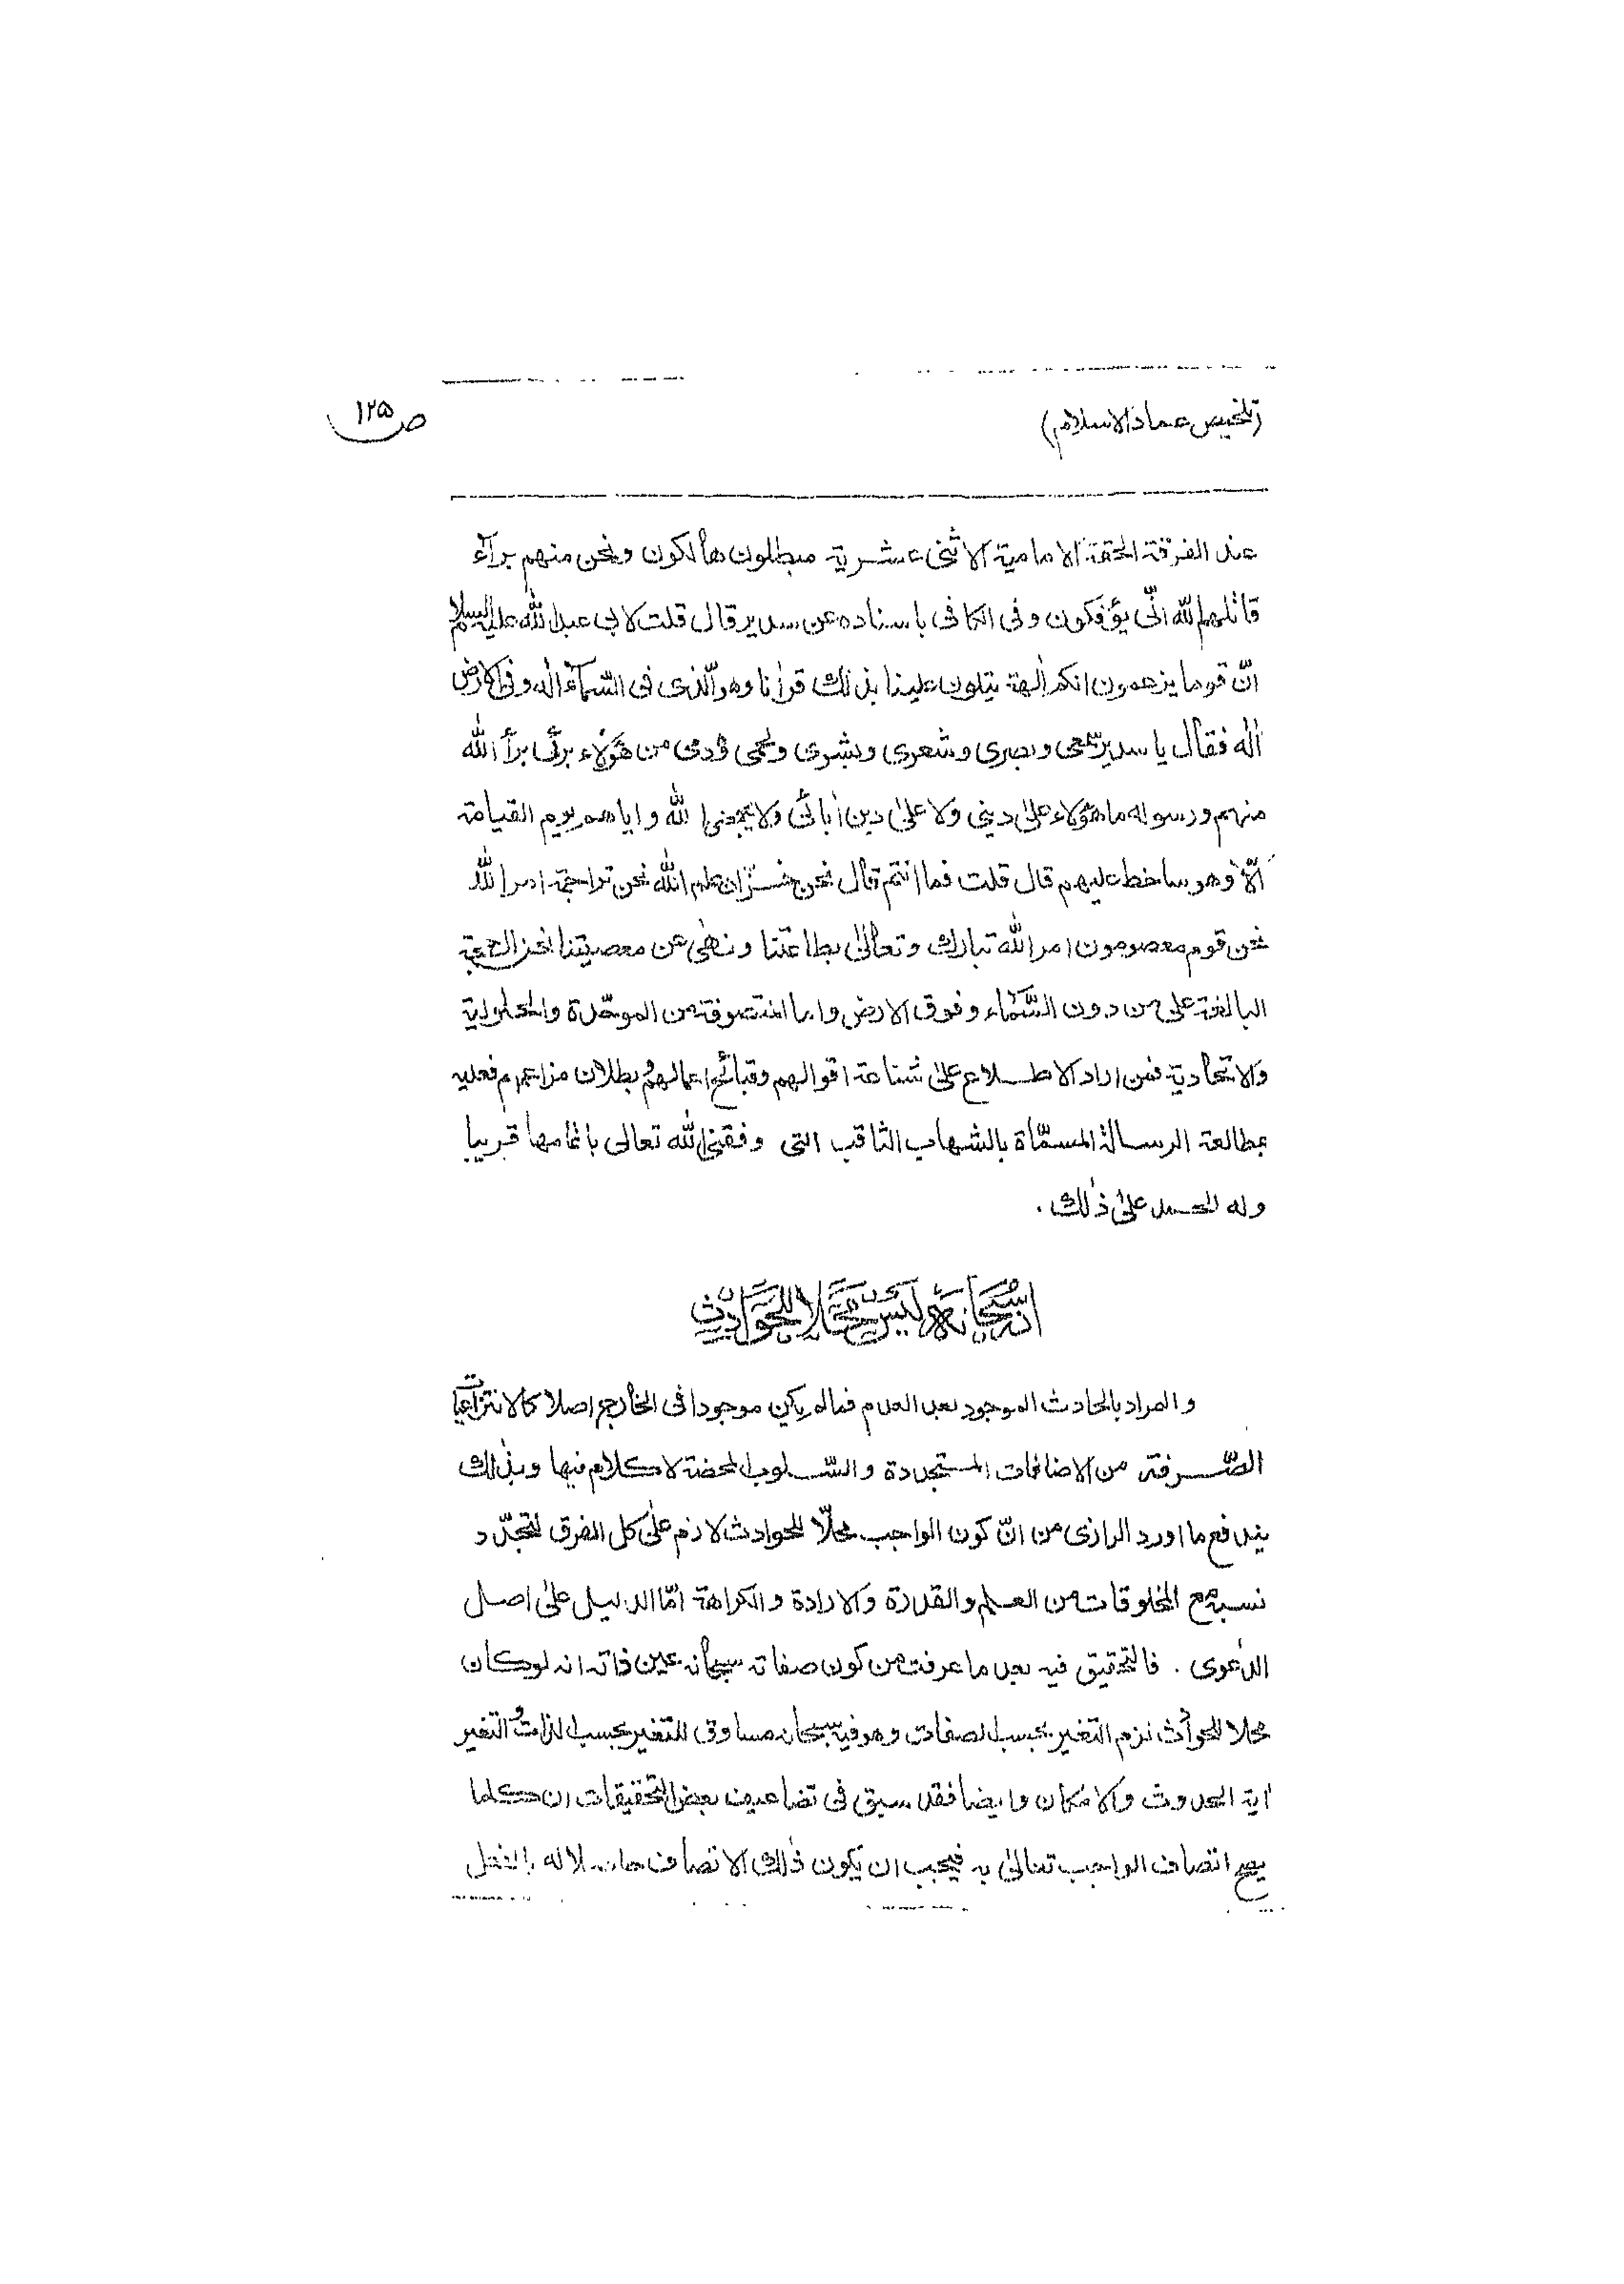 (تلخيص عماد الاسلام)
ص ١٢٥
عند الفرقة المحقة الامامية الاثنى عشرية مبطلون هالكون ونحن منهم برآء
قاتلهم الله انّى يؤفكون وفى الكافى باسناده عن سدير قال قلت لابى عبد الله عليه السلام
انّ قوما يزعمون انكم اٰلهة يتلون علينا بذلك قراٰنا وهو الّذى فى السّمآء اله وفى الارض
اله فقال يا سدير سمعى وبصرى وشعرى وبشرى ولحمى ودمى من هؤلاء برئى برأ الله
منهم ورسوله ما هؤلاء على دينى ولا على دين اٰبائى ولا يجمعنى الله واياهم يوم القيامة
الّا وهو ساخط عليهم قال قلت فما انتم قال نحن خزان علم الله نحن تراجمة امر الله
نحن قوم معصومون امر الله تبارك وتعالى بطاعتنا ونهى عن معصيتنا نحن الحجة
البالغة على من دون السّماء وفوق الارض واما المتصوفة من الموحّدة والحلولية
والاتحادية فمن اراد الاطلاع على شناعة اقوالهم وقبائح اعمالهم وبطلان مزاعمهم فعليه
بمطالعة الرسالة المسمّاة بالشهاب الثاقب التى وفقنى الله تعالى باتمامها قريبا
وله الحمد على ذلك .
انه سُبحَانَهٗ لَيْسَ مَحَلًّا لِلحَوَادِثِ
والمراد بالحادث الموجود بعد العدم فما لم يكن موجودا فى الخارج اصلا كالانتزاعيات
الصّرفة من الاضافات المستجددة والسّلوب المحضة لا كلام فيها وبذلك
يندفع ما اورد الرازى من انّ كون الواجب محلّا للحوادث لازم على كل الفرق لتجدّد
نسبة مع المخلوقات من العلم والقدرة والارادة والكراهة امّا الدليل على اصل
الدعوى . فالتحقيق فيه بعد ما عرفت من كون صفاته سبحانه عين ذاته انه لو كان
محلا للحوادث لزم التغير بحسب الصفات وهو فيه سبحانه مساوق للتغير بحسب الذات والتغير
اٰية الحدوث والامكان وايضا فقد سبق فى تضاعيف بعض التحقيقات ان كلما
يصح اتصاف الواجب تعالىٰ به فيجب ان يكون ذلك الاتصاف حاصلا له بالفعل